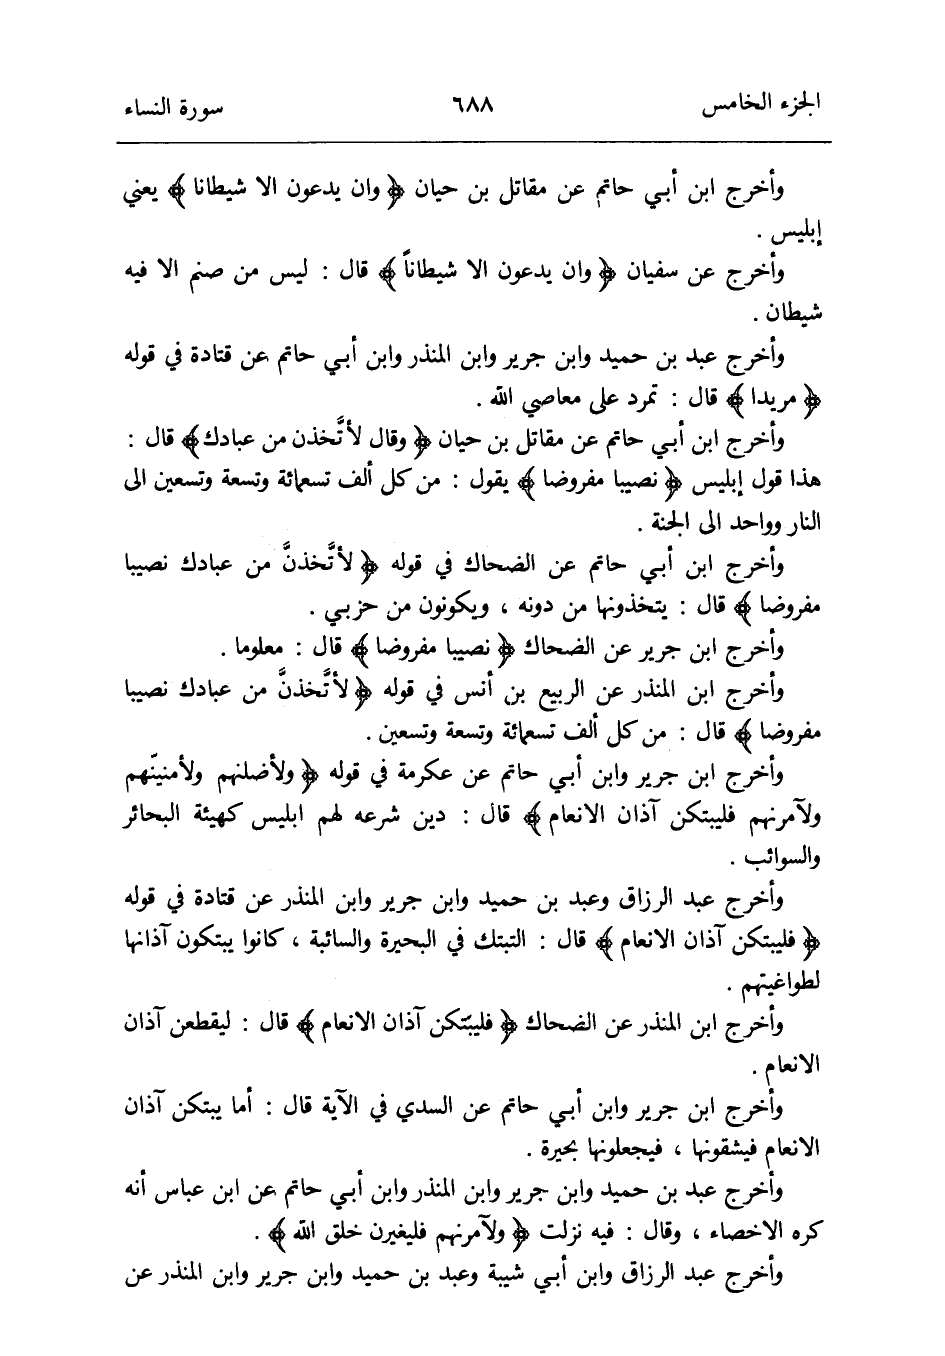 الجزء الخامس ٦٨٨ سورة النساء
وأخرج ابن أبي حاتم عن مقاتل بن حيان ﴿ وان يدعون الا شيطانا ﴾ يعني
إبليس .
وأخرج عن سفيان ﴿ وان يدعون الا شيطاناً ﴾ قال : ليس من صنم الا فيه
شيطان .
وأخرج عبد بن حميد وابن جرير وابن المنذر وابن أبي حاتم عن قتادة في قوله
﴿ مريدا ﴾ قال : تمرد على معاصي الله .
وأخرج ابن أبي حاتم عن مقاتل بن حيان ﴿ وقال لأتَّخذن من عبادك ﴾ قال :
هذا قول إبليس ﴿ نصيبا مفروضا ﴾ يقول : من كل ألف تسعمائة وتسعة وتسعين الى
النار وواحد الى الجنة .
وأخرج ابن أبي حاتم عن الضحاك في قوله ﴿ لأتَّخذنَّ من عبادك نصيبا
مفروضا ﴾ قال : يتخذونها من دونه ، ويكونون من حزبي .
وأخرج ابن جرير عن الضحاك ﴿ نصيبا مفروضا ﴾ قال : معلوما .
وأخرج ابن المنذر عن الربيع بن أنس في قوله ﴿ لأتَّخذنَّ من عبادك نصيبا
مفروضا ﴾ قال : من كل ألف تسعمائة وتسعة وتسعين .
وأخرج ابن جرير وابن أبي حاتم عن عكرمة في قوله ﴿ ولأضلنهم ولأمنينّهم
ولآمرنهم فليبتكن آذان الانعام ﴾ قال : دين شرعه لهم ابليس كهيئة البحائر
والسوائب .
وأخرج عبد الرزاق وعبد بن حميد وابن جرير وابن المنذر عن قتادة في قوله
﴿ فليبتكن آذان الانعام ﴾ قال : التبتك في البحيرة والسائبة ، كانوا يبتكون آذانها
لطواغيتهم .
وأخرج ابن المنذر عن الضحاك ﴿ فليبّتكن آذان الانعام ﴾ قال : ليقطعن آذان
الانعام .
وأخرج ابن جرير وابن أبي حاتم عن السدي في الآية قال : أما يبتكن آذان
الانعام فيشقونها ، فيجعلونها بحيرة .
وأخرج عبد بن حميد وابن جرير وابن المنذر وابن أبي حاتم عن ابن عباس أنه
كره الاخصاء ، وقال : فيه نزلت ﴿ ولآمرنهم فليغيرن خلق الله ﴾ .
وأخرج عبد الرزاق وابن أبي شيبة وعبد بن حميد وابن جرير وابن المنذر عن